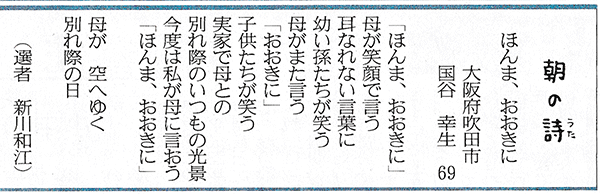 朝の詩
うた
ほんま、おおきに
大阪府吹田市
国谷 幸生 69
「ほんま、おおきに」
母が笑顔で言う
耳なれない言葉に
幼い孫たちが笑う
母がまた言う
「おおきに」
子供たちが笑う
実家で母との
別れ際のいつもの光景
今度は私が母に言おう
「ほんま、おおきに」
母が 空へゆく
別れ際の日
(選者 新川和江)